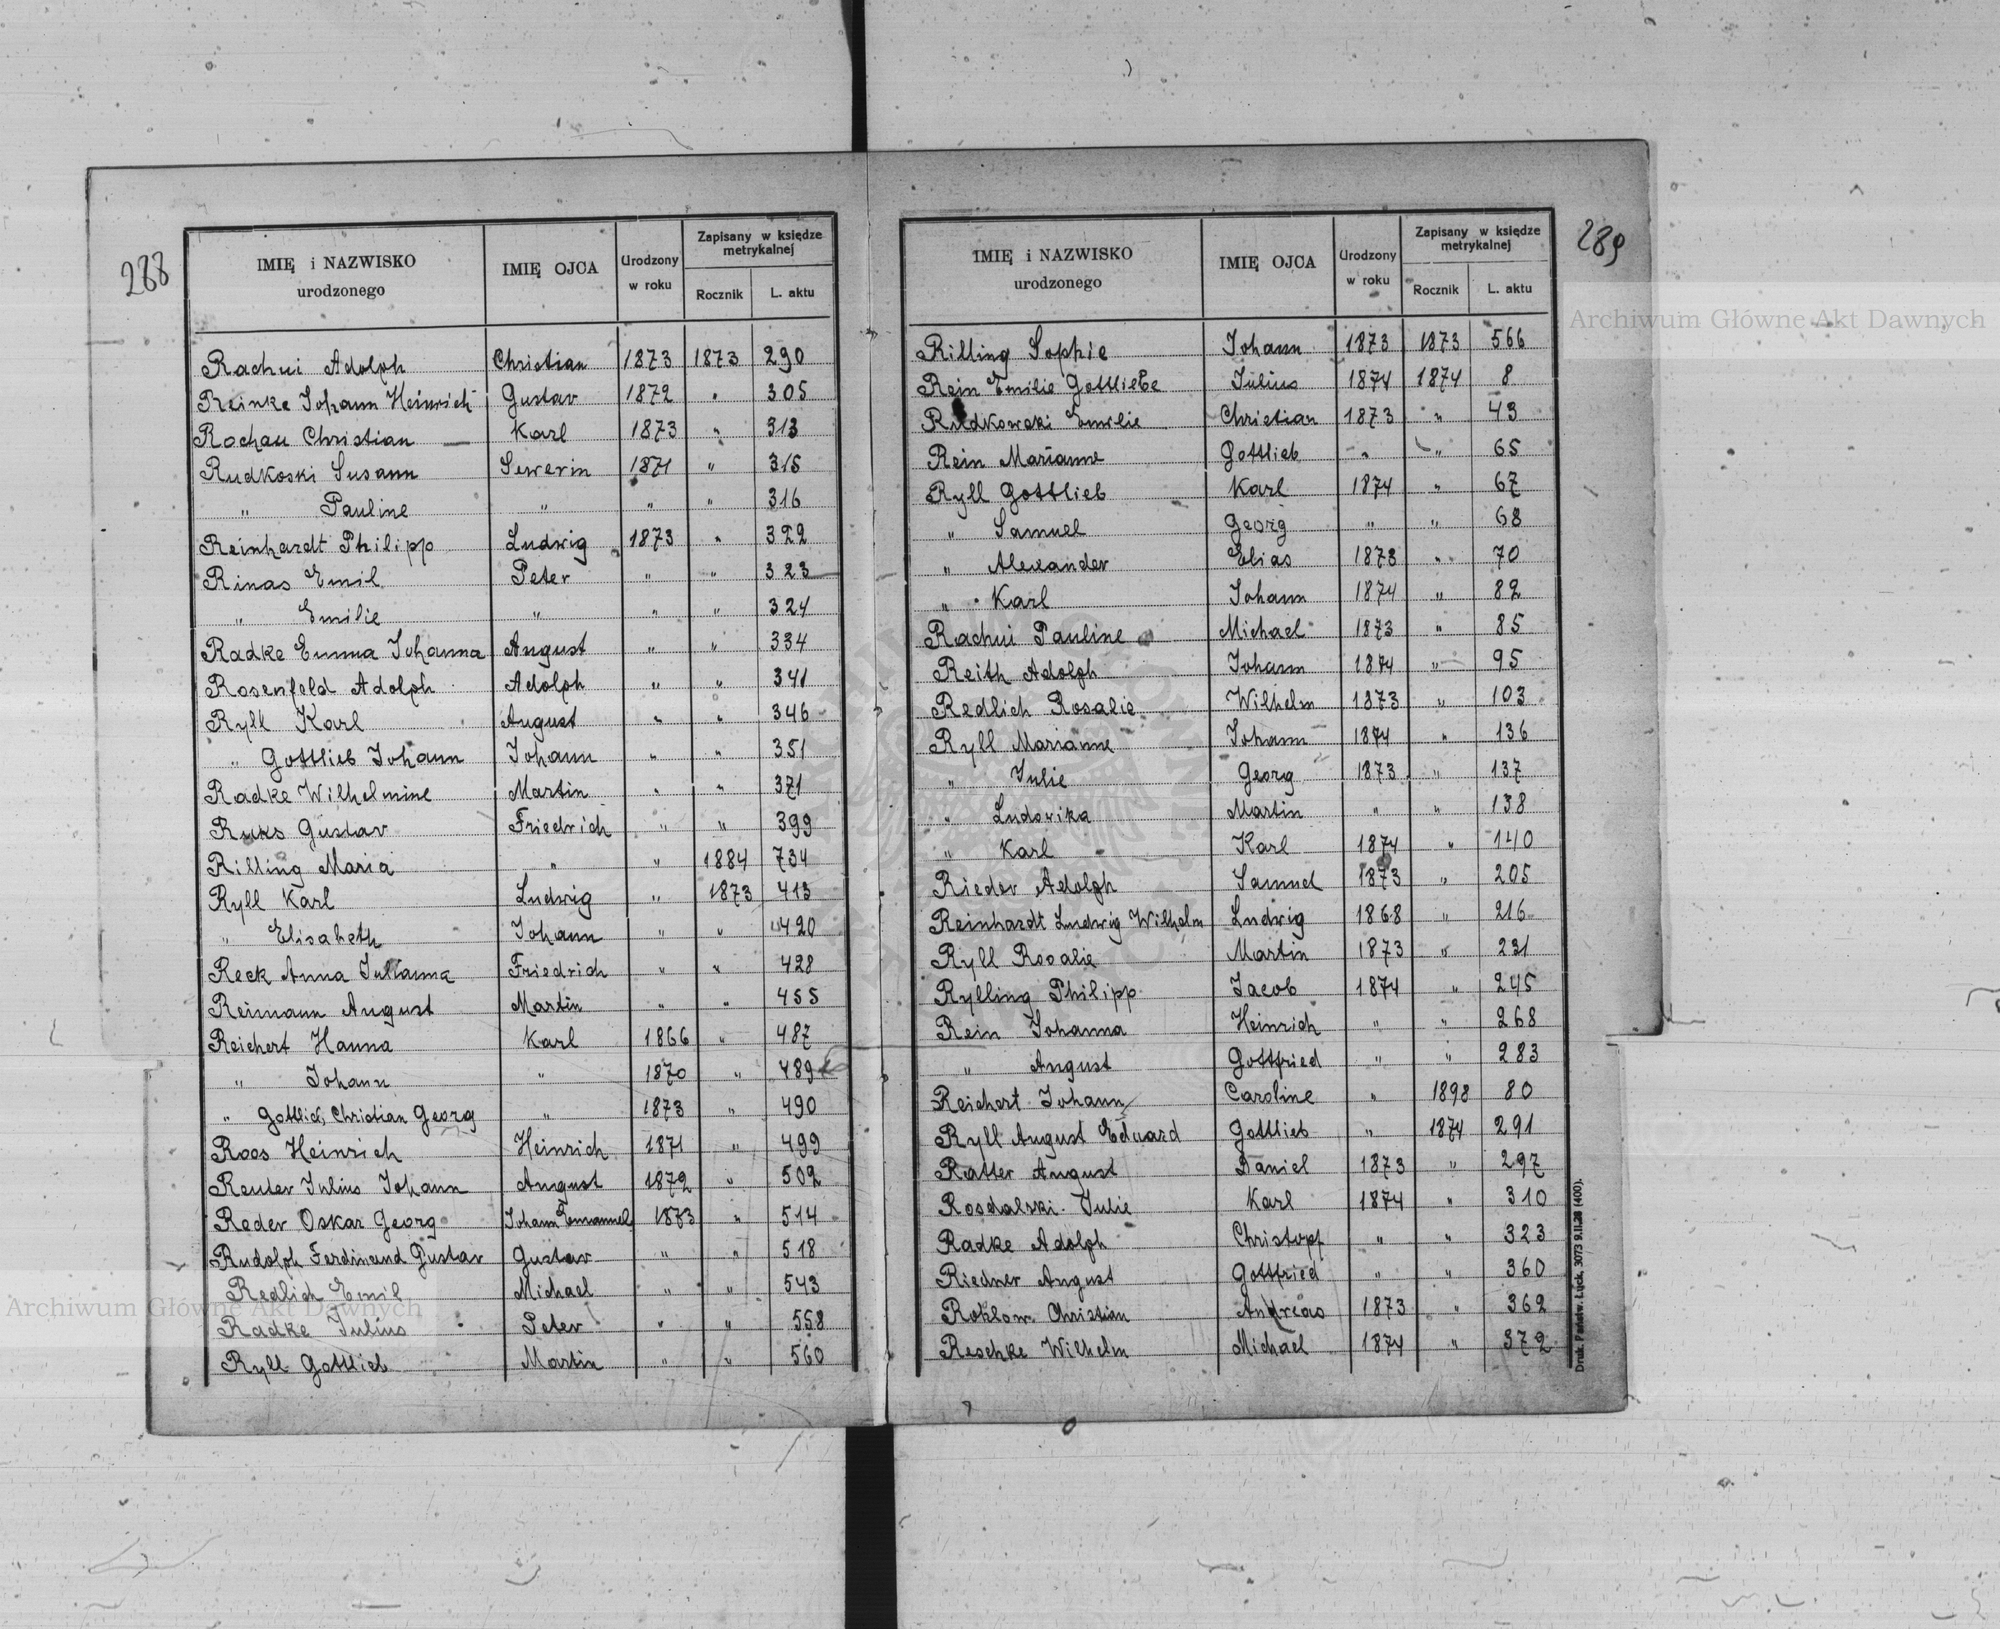 288
IMIĘ i NAZWISKO urodzonego | IMIĘ OJCA | Urodzony w roku | Zapisany w księdze metrykalnej
Rocznik | L. aktu
Rachui Adolph | Christian | 1873 | 1873 | 290
Reinke Johann Heinrich | Gustav | 1872 | " | 305
Rachau Christian | Karl | 1873 | " | 313
Rudkoski Susann | Sewerin | 1871 | " | 315
" Pauline | " | " | " | 316
Reinhardt Philipp | Ludwig | 1873 | " | 322
Rinas Emil | Peter | " | " | 323
" Emilie | " | " | " | 324
Radke Emma Johanna | August | " | " | 334
Rosenfeld Adolph | Adolph | " | " | 341
Ryll Karl | August | " | " | 346
" Gottlieb Johann | Johann | " | " | 351
Radke Wilhelmine | Martin | " | " | 371
Gustav | Friedrich | " | " | 399
Rilling Maria | " | " | 1884 | 734
Ryll Karl | Ludwig | " | 1873 | 413
" Elisabeth | Johann | " | " | 420
Reck Anna Julianna | Friedrich | " | " | 428
Reimann August | Martin | " | " | 455
Reichert Hanna | Karl | 1866 | " | 487
" Johann | " | 1870 | " | 489
" Gottlieb Christian Georg | " | 1873 | " | 490
Roos Heinrich | Heinrich | 1871 | " | 499
Reuter Julius Johann | August | 1872 | " | 502
Reder Oskar Georg | Johann Emanuel | 1873 | " | 514
Rudolph Ferdinand Gustav | Gustav | " | " | 518
Redlich Emil | Michael | " | " | 543
Radke Julius | Peter | " | " | 558
Ryll Gottlieb | Martin | " | " | 560
289
IMIĘ i NAZWISKO urodzonego | IMIĘ OJCA | Urodzony w roku | Zapisany w księdze metrykalnej
Rocznik | L. aktu
Rilling Sophie | Johann | 1873 | 1873 | 566
Rein Emilie Gottliebe | Julius | 1874 | 1874 | 8
Rudkowski Emilie | Christian | 1873 | " | 43
Rein Marianne | Gottlieb | " | " | 65
Ryll Gottlieb | Karl | 1874 | " | 67
" Samuel | Georg | " | " | 68
" Alexander | Elias | 1873 | " | 70
" Karl | Johann | 1874 | " | 82
Rachui Pauline | Michael | 1873 | " | 85
Reith Adolph | Johann | 1874 | " | 95
Redlich Rosalie | Wilhelm | 1873 | " | 103
Ryll Marianne | Johann | 1874 | " | 136
" Julie | Georg | 1873 | " | 137
" Ludowika | Martin | " | " | 138
" Karl | Karl | 1874 | " | 140
Rieder Adolph | Samuel | 1873 | " | 205
Reinhardt Ludwig Wilhelm | Ludwig | 1868 | " | 216
Ryll Rosalie | Martin | 1873 | " | 231
Rylling Philipp | Jacob | 1874 | " | 245
Rein Johanna | Heinrich | " | " | 268
" August | Gottfried | " | " | 283
Reichert Johann | Caroline | " | 1898 | 80
Ryll August Eduard | Gottlieb | " | 1874 | 291
Ratter August | Daniel | 1873 | " | 297
Rosdalski Julie | Karl | 1874 | " | 310
Radke Adolph | Christopf | " | " | 323
Riedner August | Gottfried | " | " | 360
Rohlow Christian | Andreas | 1873 | " | 362
Reschke Wilhelm | Michael | 1874 | " | 372
Druk. Państw. Łuck. 3073 9.II.28 (400).
Archiwum Główne Akt Dawnych
Archiwum Główne Akt Dawnych